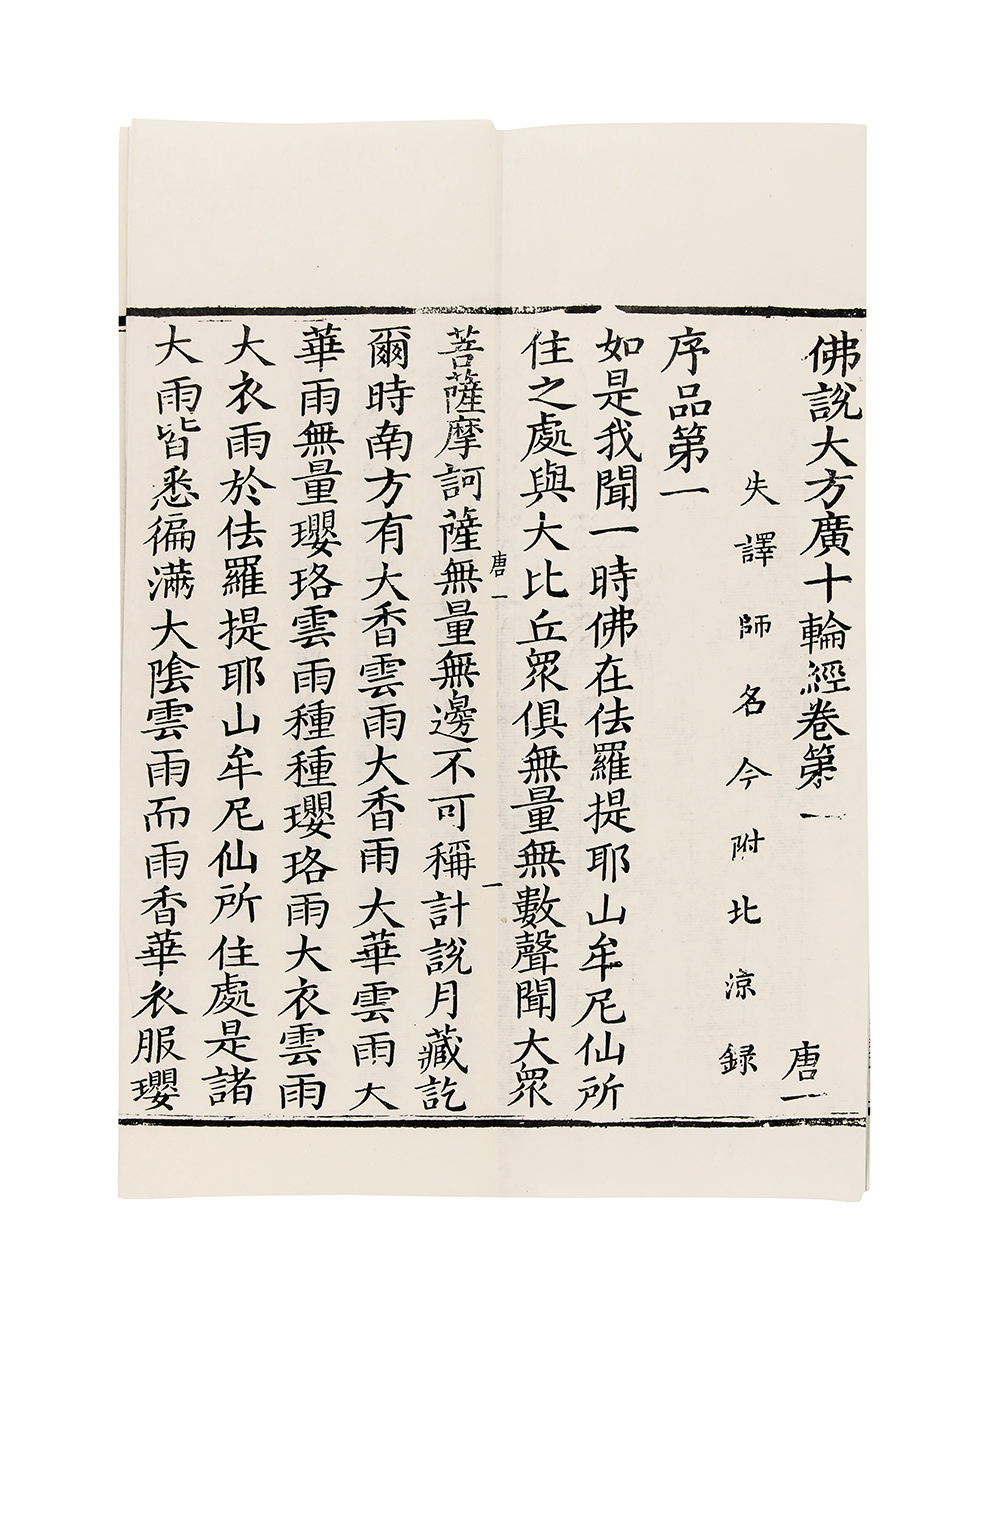 佛說大方廣十輪經卷第一 唐一
失譯師名今附北涼錄
序品第一
如是我聞一時佛在佉羅提耶山牟尼仙所
住之處與大比丘眾俱無量無數聲聞大眾
唐一 一
菩薩摩訶薩無量無邊不可稱計說月藏訖
爾時南方有大香雲雨大香雨大華雲雨大
華雨無量瓔珞雲雨種種瓔珞雨大衣雲雨
大衣雨於佉羅提耶山牟尼仙所住處是諸
大雨皆悉徧滿大陰雲雨而雨香華衣服瓔